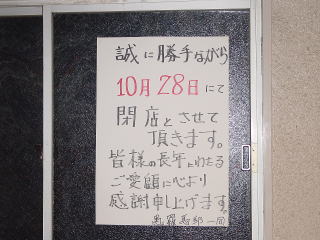 誠に勝手ながら
10月28日にて
閉店とさせて
頂きます。
皆様の長年にわたる
ご愛顧に心より
感謝申し上げます。
一同